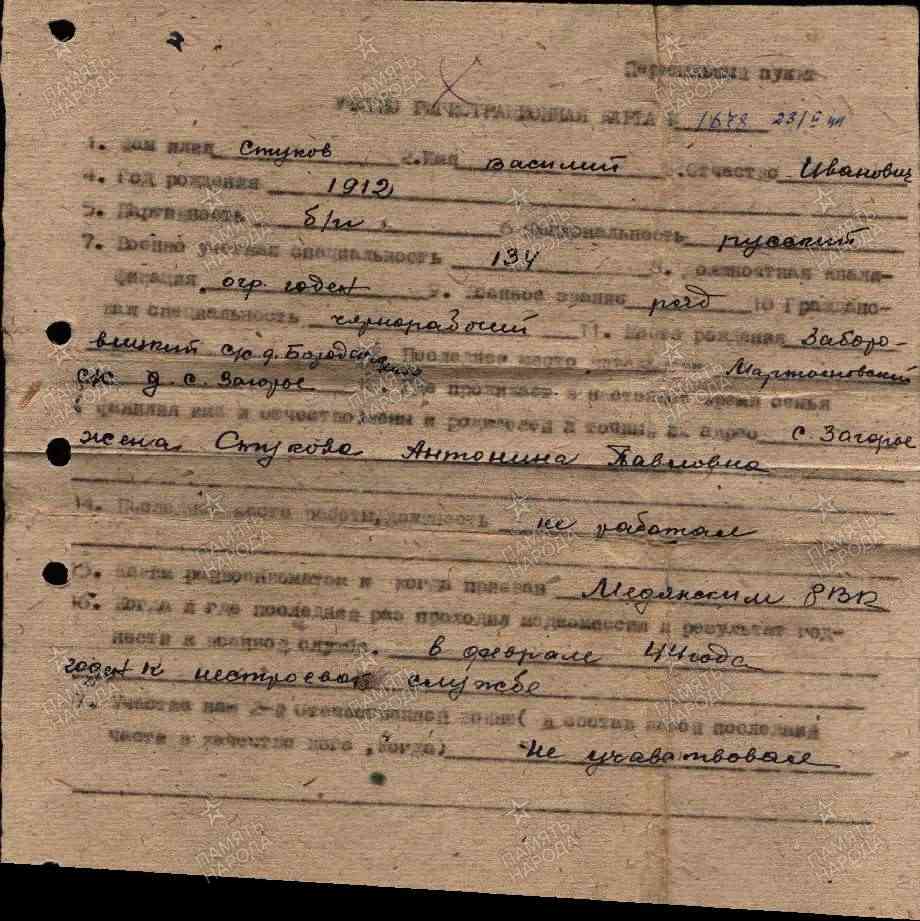 Пересыльный пункт
УЧЕТНО РЕГИСТРАЦИОННАЯ КАРТА № 1678 23/II 44
1. Фамилия Стуков 2. Имя Василий 3. Отчество Иванович
4. Год рождения 1912
5. Партийность б/п 6 Национальность русский
7. Военно учетная специальность 134 8. Должностная квали-
фикация огр. годен 9. Военное звание ряд 10 Гражданс-
кая специальность чернорабочий 11. Место рождения Заборо-
вицкий с/с д.
Последнее место
с/с д. с. Загорье Где проживает в настоящее время семья
фамилия имя и отчество жены и родителей и точный их адрес с. Загорье
жена Стукова Антонина Павловна
14. Последнее место работы, должность не работал
15. Каким райвоенкоматом и когда призван Медянским РВК
16. Когда и где последний раз проходил медкомиссию и результат год-
ности к военной службе. в феврале 44 года
годен к нестроевой службе
17. Участие в Отечественной войне( в составе какой последней
части в качестве кого, когда) Не учавствовал
ПАМЯТЬ НАРОДА